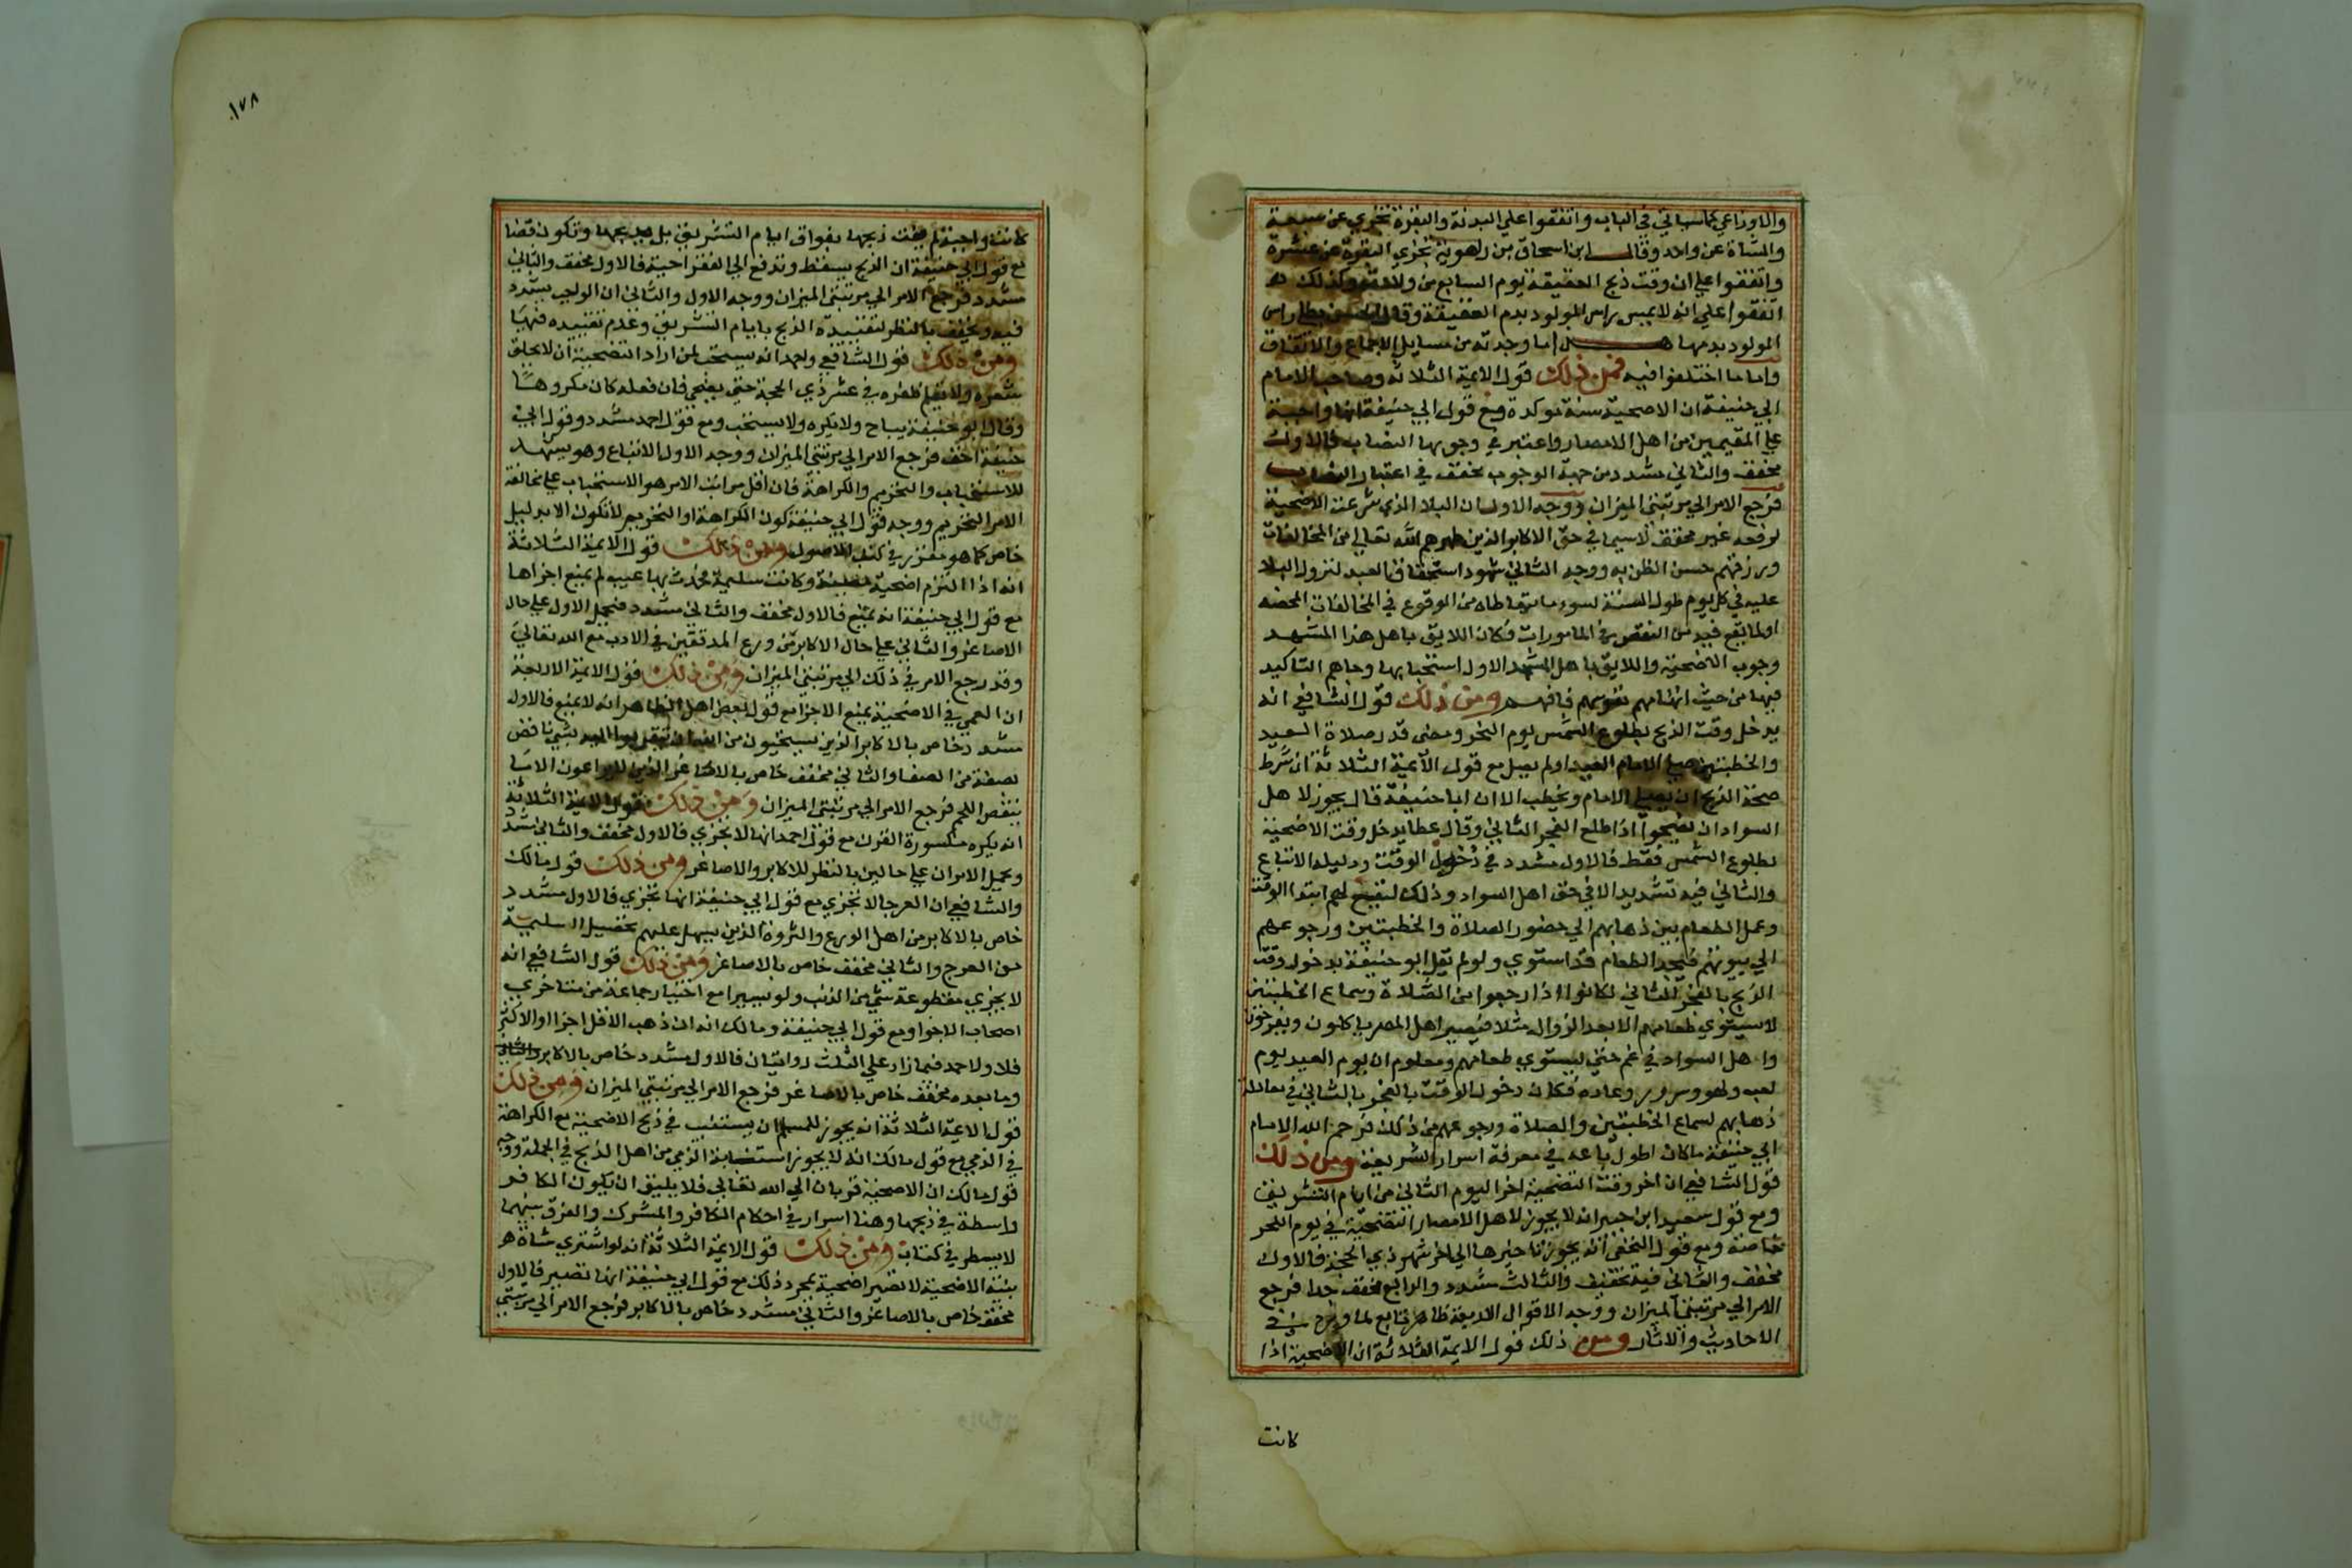 والاوزاعي كما سياتي في الباب واتفقوا علي البدنة والبقرة تجزي عن سبعة
والشاة عن واحد وقال ابن اسحاق بن راهوية تجزي البقرة عن عشرة
واتفقوا علي ان وقت ذبح العقيقة يوم السابع من ولادته وكذلك
اتفقوا علي انه لا يمس راس المولود بدم العقيقة وقال الحسن يطلا راس
المولود بدمها هذا ما وجدته من مسايل الاجماع والاتفاق
واما ما اختلفوا فيه فمن ذلك قول الايمة الثلاثة وصاحبا الامام
ابي حنيفة ان الاضحية سنة موكدة مع قول ابي حنيفة انها واجبة
علي المقيمين من اهل الامصار واعتبر في وجوبها النصاب فالاول
مخفف والثاني مشدد من جهة الوجوب مخفف في اعتبار النصاب
فرجع الامر الي مرتبتي الميزان ووجه الاول ان البلا الذي شرعت الاضحية
لرفعه غير محقق لاسيما في حق الاكابر الذين طهرهم الله تعالي من المخالفات
ورزقهم حسن الظن به ووجه الثاني شهود استحقاق العبد لنزول البلا
عليه في كل يوم طول السنة لسوء ما يتعاطاه من الوقوع في المخالفات المحضه
او لما يقع فيه من النقص في المامورات فكان اللايق باهل هذا المشهد
وجوب الاضحية واللايق باهل المشهد الاول استحبابها وجاهم التاكيد
فيها من حيث اتهامهم نفوسهم فافهم ومن ذلك قول الشافعي انه
يدخل وقت الذبح بطلوع الشمس يوم النحر ومضي قدر صلاة العيد
والخطبتين صلي الامام العيد او لم يصل مع قول الايمة الثلاثة ان شرط
صحة الذبح ان يصلي الامام ويخطب الا ان ابا حنيفة قال يجوز لاهل
السواد ان يضحوا اذا طلع الفجر الثاني وقال عطا يدخل وقت الاضحية
بطلوع الشمس فقط فالاول مشدد في دخول الوقت ودليله الاتباع
والثاني فيه تشديد الا في حق اهل السواد وذلك ليتسع لهم ابتدا الوقت
وعمل الطعام بين ذهابهم الي حضور الصلاة والخطبتين ورجوعهم
الي بيوتهم فيجد الطعام قد استوي ولو لم يقل ابو حنيفة بدخول وقت
الذبح بالفجر الثاني لكانوا اذا رجعوا من الصلاة وسماع الخطبتين
لا يستوي طعامهم الا بعد الزوال مثلا فيصير اهل المصر ياكلون ويفرحون
واهل السواد في غم حتي يستوي طعامهم ومعلوم ان يوم العيد يوم
لعب ولهو وسرور وعاده فكان دخول الوقت بالفجر بالثاني في
ذهابهم لسماع الخطبتين والصلاة ورجوعهم من ذلك فرحم الله الامام
ابي حنيفة ما كان اطول باعه في معرفة اسرار الشريعة ومن ذلك
قول الشافعي ان اخر وقت التضحية اخر اليوم الثاني من ايام التشريق
ومع قول سعيد ابن جبير انه لا يجوز لاهل الامصار التضحية في يوم النحر
خاصة ومع قول النخعي انه يجوز تاخيرها الي اخر شهر ذي الحجة فالاول
مخفف والثاني فيه تخفيف والثالث مشدد والرابع مخفف جدا فرجع
الامر الي مرتبتي الميزان ووجه الاقوال الاربعة ظاهر تابع لما ورد في
الاحاديث والاثار ومن ذلك قول الايمة الثلاثة ان الاضحية اذا
كانت
١٧٨
كانت واجبة لم يفت ذبحها بفوات ايام التشريق بل يذبحها وتكون قضا
مع قول ابي حنيفة ان الذبح يسقط وتدفع الي الفقرا حية فالاول مخفف والثاني
مشدد فرجع الامر الي مرتبتي الميزان ووجه الاول والثاني ان الواجب يشدد
فيه ويخفف بالنظر لتقييده الذبح بايام التشريق وعدم تقييده فيها
ومن ذلك قول الشافعي واحمد انه يستحب لمن اراد التضحية ان لا يحلق
شعره ولا يقلم ظفره في عشر ذي الحجة حتي يضحي فان فعله كان مكروها
وقال ابو حنيفة يباح ولا يكره ولا يستحب ومع قول احمد مشدد وقول ابي
حنيفة اخف فرجع الامر الي مرتبتي الميزان ووجه الاول الاتباع وهو يشهد
للاستحباب والتحريم والكراهة فان اقل مراتب الامر هو الاستحباب علي مخالفة
الامر التحريم ووجه قول ابي حنيفة كون الكراهة او التحريم لا تكون الا بدليل
خاص كما هو مقرر في كتب الاصول ومن ذلك قول الايمة الثلاثة
انه اذا التزم اضحية معينة وكانت سليمة فحدث بها عيب لم يمنع اجزاها
مع قول ابي حنيفة انه يمنع فالاول مخفف والثاني مشدد فيحمل الاول علي حال
الاصاغر والثاني علي حال الاكابر من ورع المدققين في الادب مع الله تعالي
وقد رجع الامر في ذلك الي مرتبتي الميزان ومن ذلك قول الايمة الاربعة
ان العمي في الاضحية يمنع الاجزا مع قول بعض اهل الظاهر انه لا يمنع فالاول
مشدد خاص بالاكابر الذين يستحيون من الله ان يتقربوا اليه بشي ناقص
بصفة من الصفا والثاني مخفف خاص بالاصاغر الذين لا يراعون الا ما
ينقص اللحم فرجع الامر الي مرتبتي الميزان ومن ذلك قول الايمة الثلاثة
انه يكره مكسورة القرن مع قول احمد انها لا تجزي فالاول مخفف والثاني مشدد
ويحمل الامران علي حالين بالنظر للاكابر والاصاغر ومن ذلك قول مالك
والشافعي ان العرجا لا تجزي مع قول ابي حنيفة انها تجزي فالاول مشدد
خاص بالاكابر من اهل الورع والثروة الذين يسهل عليهم تحصيل السليمة
من العرج والثاني مخفف خاص بالاصاغر ومن ذلك قول الشافعي انه
لا يجزي مقطوعة شي من الذنب ولو يسيرا مع اختيار جماعة من متاخري
اصحاب الاجزا ومع قول ابي حنيفة ومالك انه ان ذهب الاقل اجزا او الاكثر
فلا ولاحمد فيما زاد علي الثلث روايتان فالاول مشدد خاص بالاكابر والثاني
وما بعده مخفف خاص بالاصاغر فرجع الامر الي مرتبتي الميزان ومن ذلك
قول الايمة الثلاثة انه يجوز للمسلم ان يستنيب في ذبح الاضحية مع الكراهة
في الذمي مع قول مالك انه لا يجوز استنابة الذمي من اهل الذبح في الجملة ووجه
قول مالك ان الاضحية قربان الي الله تعالي فلا يليق ان يكون الكافر
واسطة في ذبحها وهنا اسرار في احكام الكافر والمشرك والفرق بينهما
لا يسطر في كتاب ومن ذلك قول الايمة الثلاثة انه لو اشتري شاة
بنية الاضحية لا تصير اضحية بمجرد ذلك مع قول ابي حنيفة انها تصير فالاول
مخفف خاص بالاصاغر والثاني مشدد خاص بالاكابر فرجع الامر الي مرتبتي